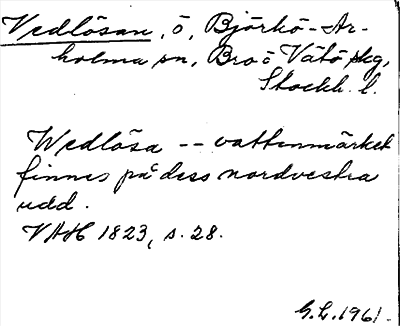 Vedlösan, ö, Björkö-Ar-
holma sn, Bro o Vätö skg,
Stockh. l.
Wedlösa -- vattenmärket
finnes på dess nordvestra
udd.
VAH 1823, s. 28.
G.L. 1961.